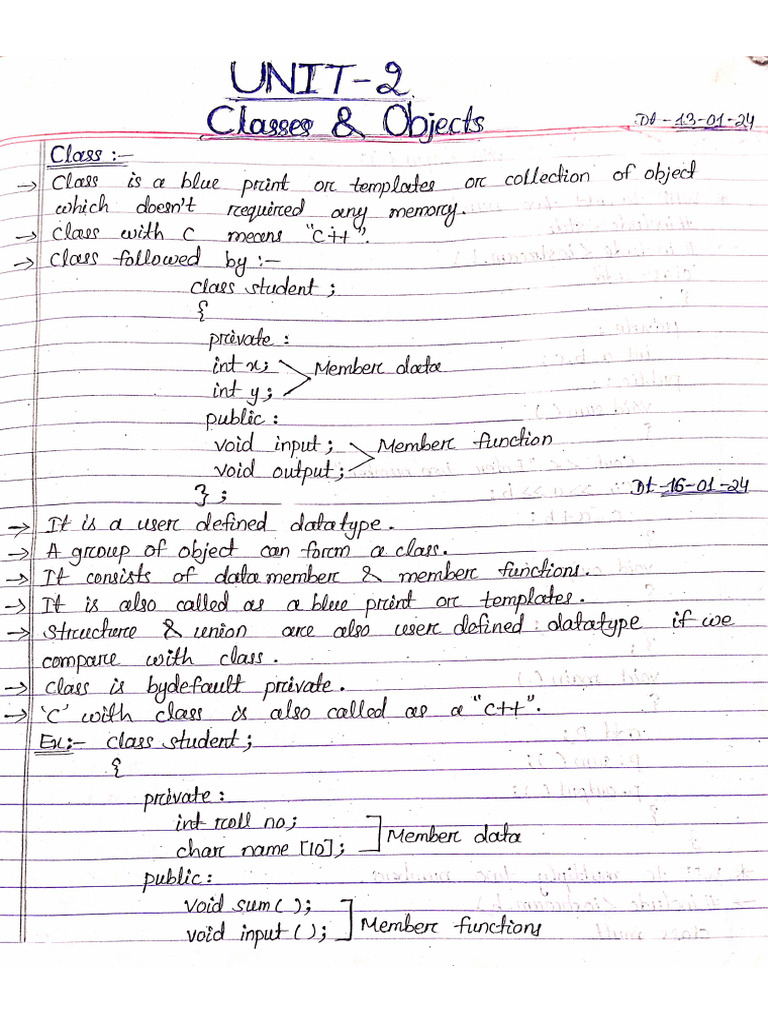 UNIT-2
Classes & Objects
Dt-13-01-24
Class :-
→ Class is a blue print or templates or collection of object
which doesn't required any memory.
→ Class with C means "C++".
→ Class followed by :-
class student ;
{
private :
int x; Member data
int y;
public :
void input ; Member function
void output ;
} ;
Dt-16-01-24
→ It is a user defined datatype.
→ A group of object can form a class.
→ It consists of data member & member functions.
→ It is also called as a blue print or templates.
→ Structure & union are also user defined datatype if we
compare with class.
→ Class is bydefault private.
→ 'C' with class is also called as a "C++".
Ex:- class student;
{
private :
int roll no;
char name [10]; Member data
public :
void sum ( );
void input ( ); Member functions